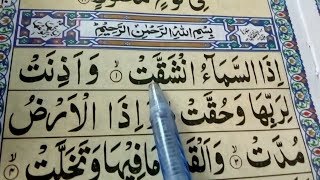 بِسْمِ اللّٰهِ الرَّحْمٰنِ الرَّحِيْمِ
اِذَا السَّمَآءُ انْشَقَّتْ ۙ﴿۱﴾ وَاَذِنَتْ
لِرَبِّهَا وَحُقَّتْ ۙ﴿۲﴾ وَاِذَا الْاَرْضُ
مُدَّتْ ۙ﴿۳﴾ وَاَلْقَتْ مَا فِيْهَا وَتَخَلَّتْ ۙ﴿۴﴾